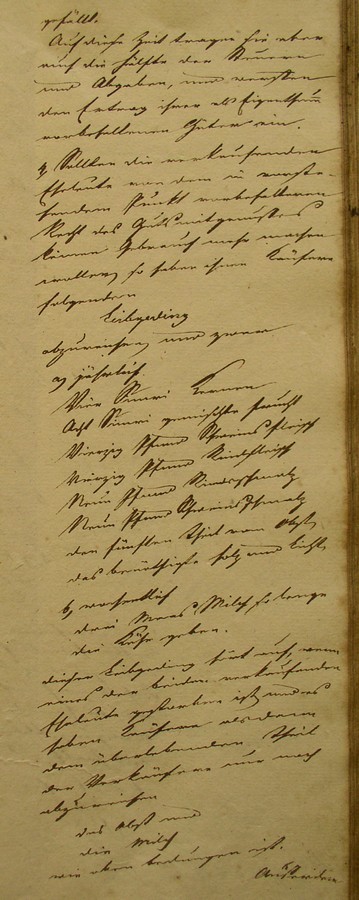 gefällt.
Auf diese Zeit tragen sie aber
auch die Hälfte der Steuern
und Abgaben, und
den Ertrag ihrer als Eigenthum
vorbehaltenen Güter ein.
Sollten die verkaufenden
Eheleute von dem in vorste-
henden Punkt vorbehaltenen
Recht des Gutsmitgenusses
keinen Gebrauch mehr machen
wollen, so haben ihnen Käufere
folgendes
Leibgeding
abzureichen, und zwar
a, jährlich
Vier Simri Kernen
Acht Simri gemischte Frucht
Vierzig Pfund Schweinefleisch
Vierzig Pfund Rindfleisch
Neun Pfund Rinderschmalz
Neun Pfund Schweineschmalz
den fünften Theil vom Obst,
das benöthigte Holz und Licht,
b, wochentlich
drei Maas Milch, so lange
die Kühe geben.
Dieses Leibgeding hört auf, wenn
eines der beiden verkaufenden
Eheleute gestorben ist, und es
haben Käufere alsdann
dem überlebenden Theil
der Verkäufere nur noch
abzureichen
das Obst und
die Milch
wie oben bedungen ist.